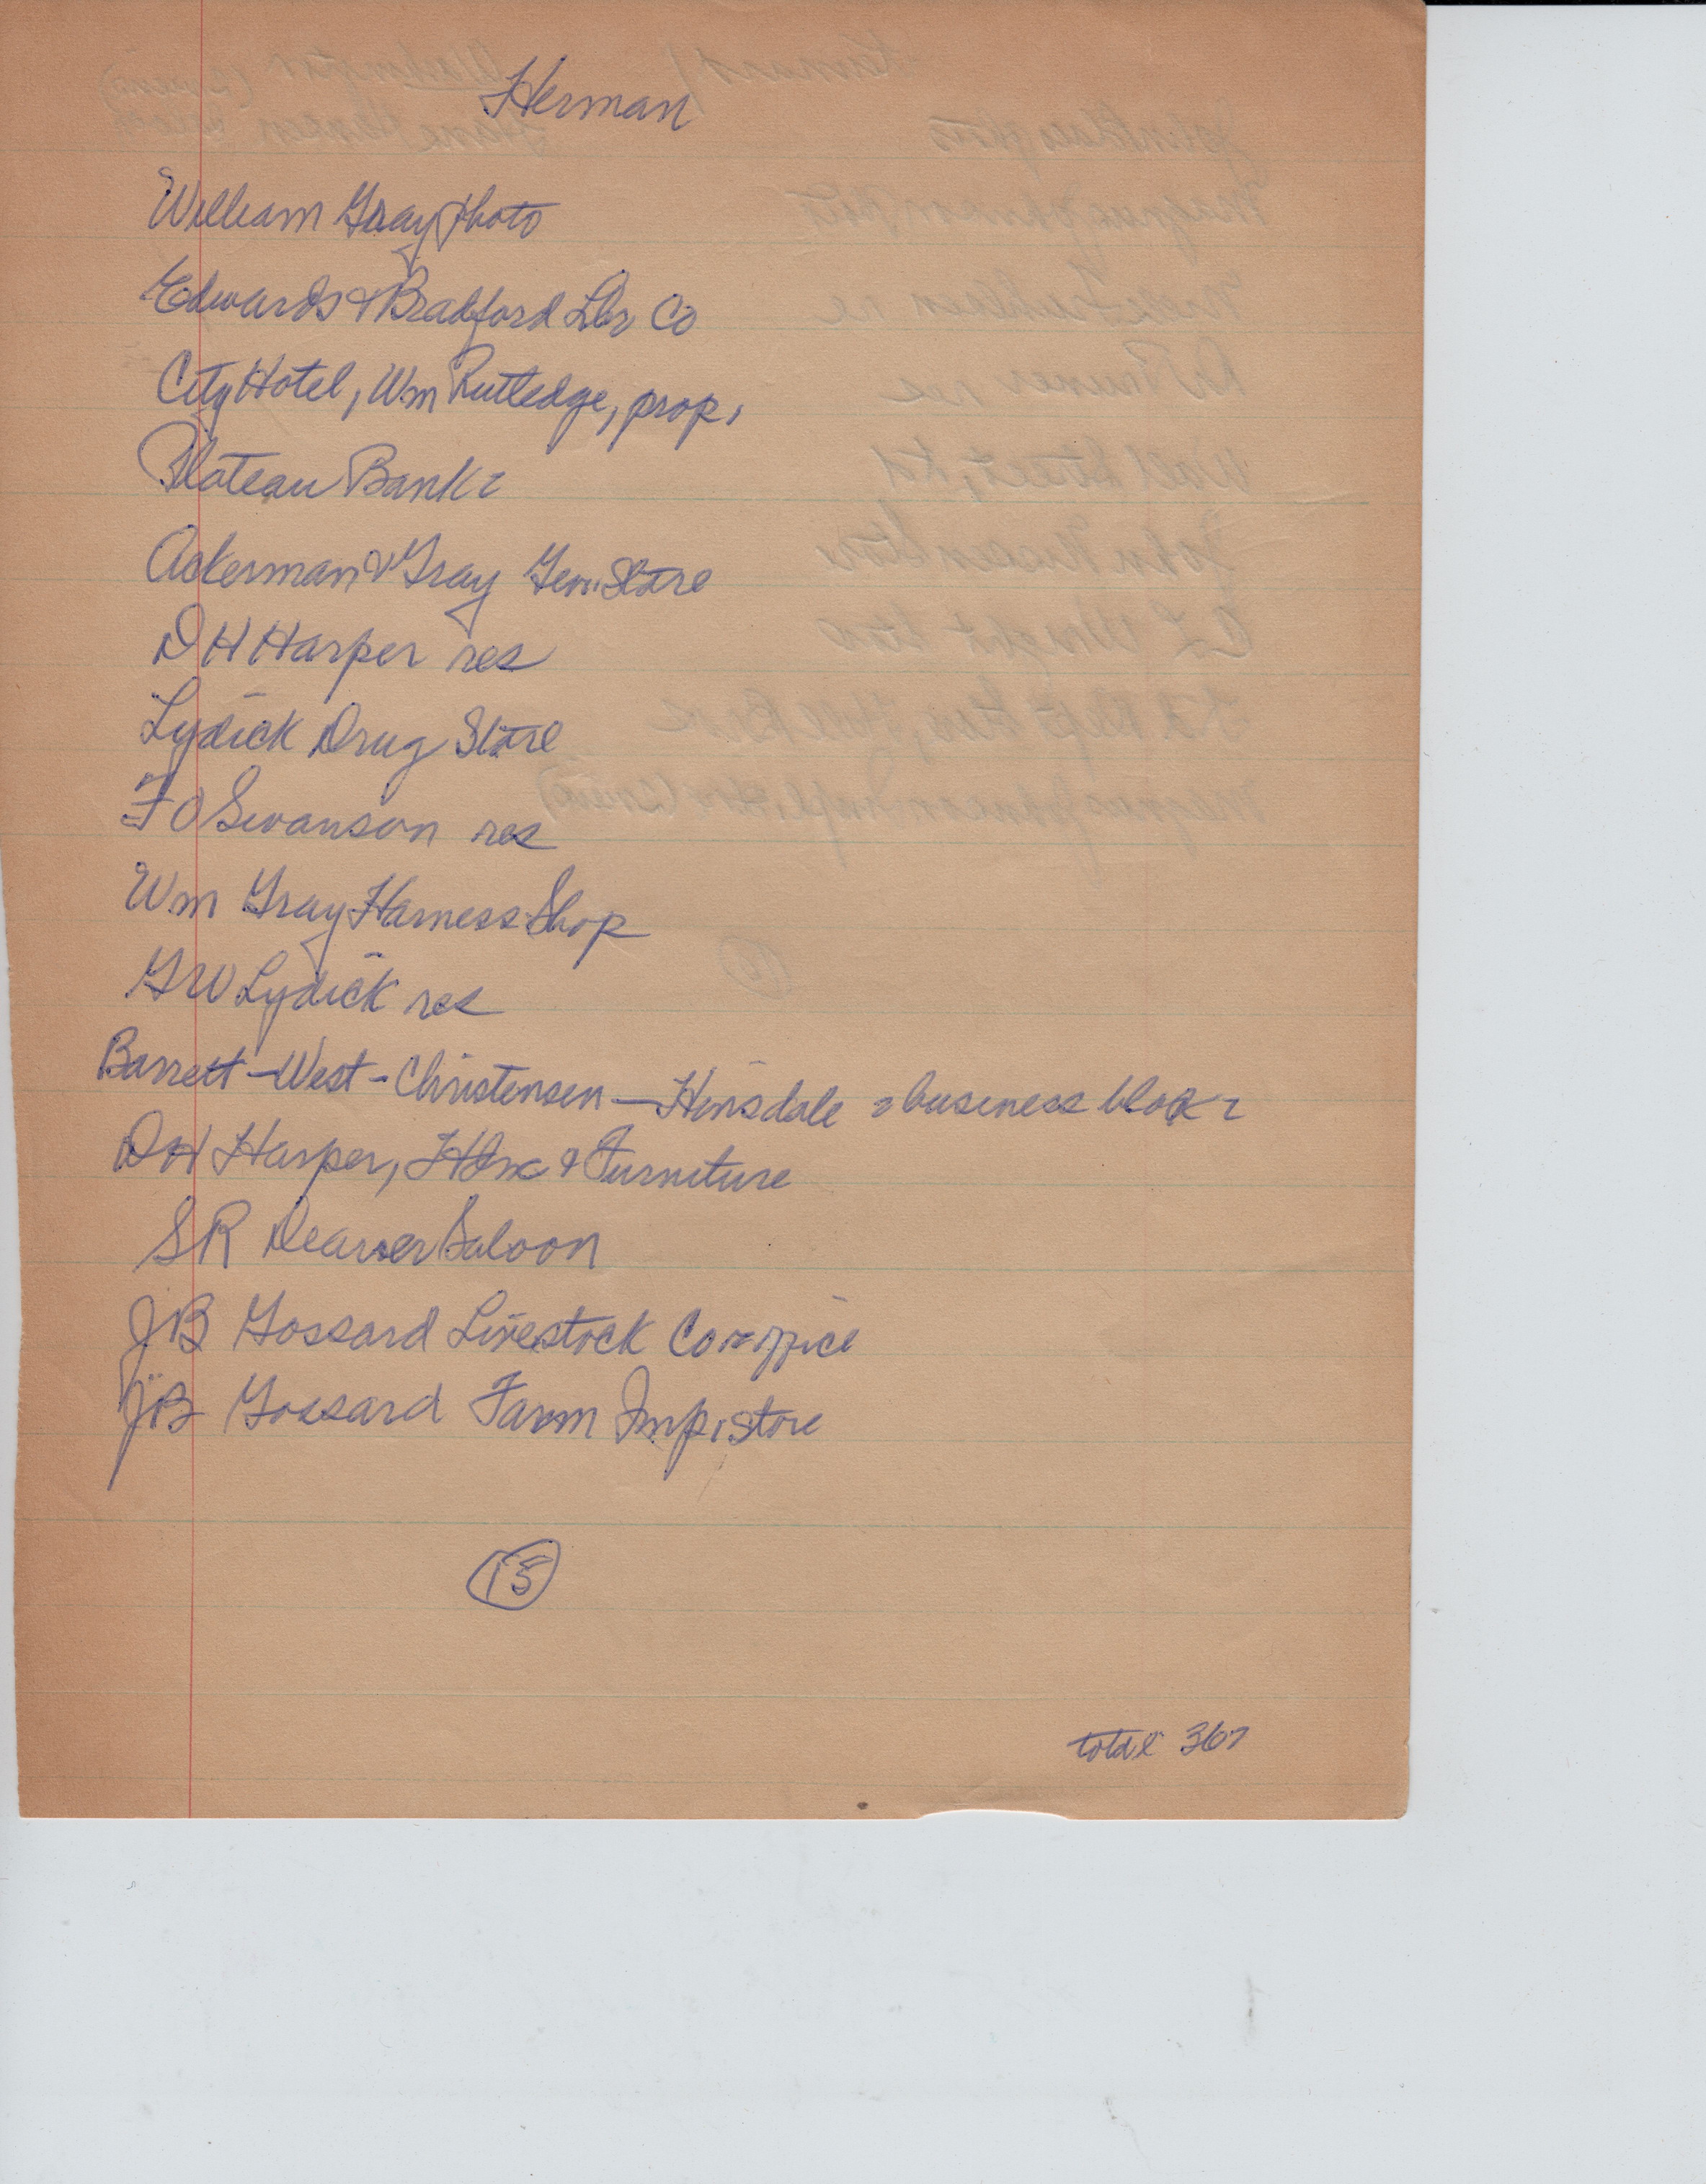 Herman
William Gray photo
Edwards & Bradford Lbr Co
City Hotel, Wm Rutledge, prop.
Plateau Bank
Ackerman & Gray Gen. Store
D H Harper res
Lydick Drug Store
F O Swanson res
Wm Gray Harness Shop
G W Lydick res
Barrett - West - Christensen - Hinsdale business block
D H Harper, Hdw & Furniture
S R Deaver Saloon
J B Gossard Livestock Co office
J B Gossard Farm Imp. store
15
total 367